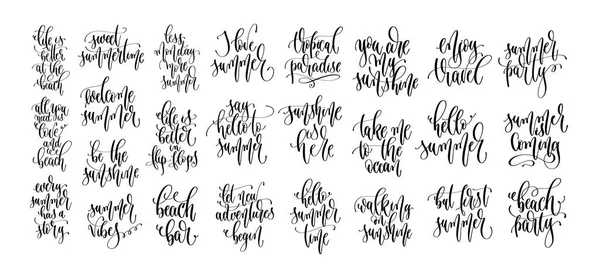 life is
better
at the
beach
all you
need is
love
and a
beach
every
summer
has a
story
sweet
summertime
welcome
summer
be the
sunshine
summer
vibes
less
monday
more
summer
life is
better
in
flip flops
beach
bar
I love
summer
say
hello to
summer
let new
adventures
begin
tropical
paradise
sunshine
is
here
hello
summer
time
you are
my
sunshine
take me
to the
ocean
walking
on
sunshine
enjoy
travel
hello
summer
but first
summer
summer
party
summer
is
coming
beach
party